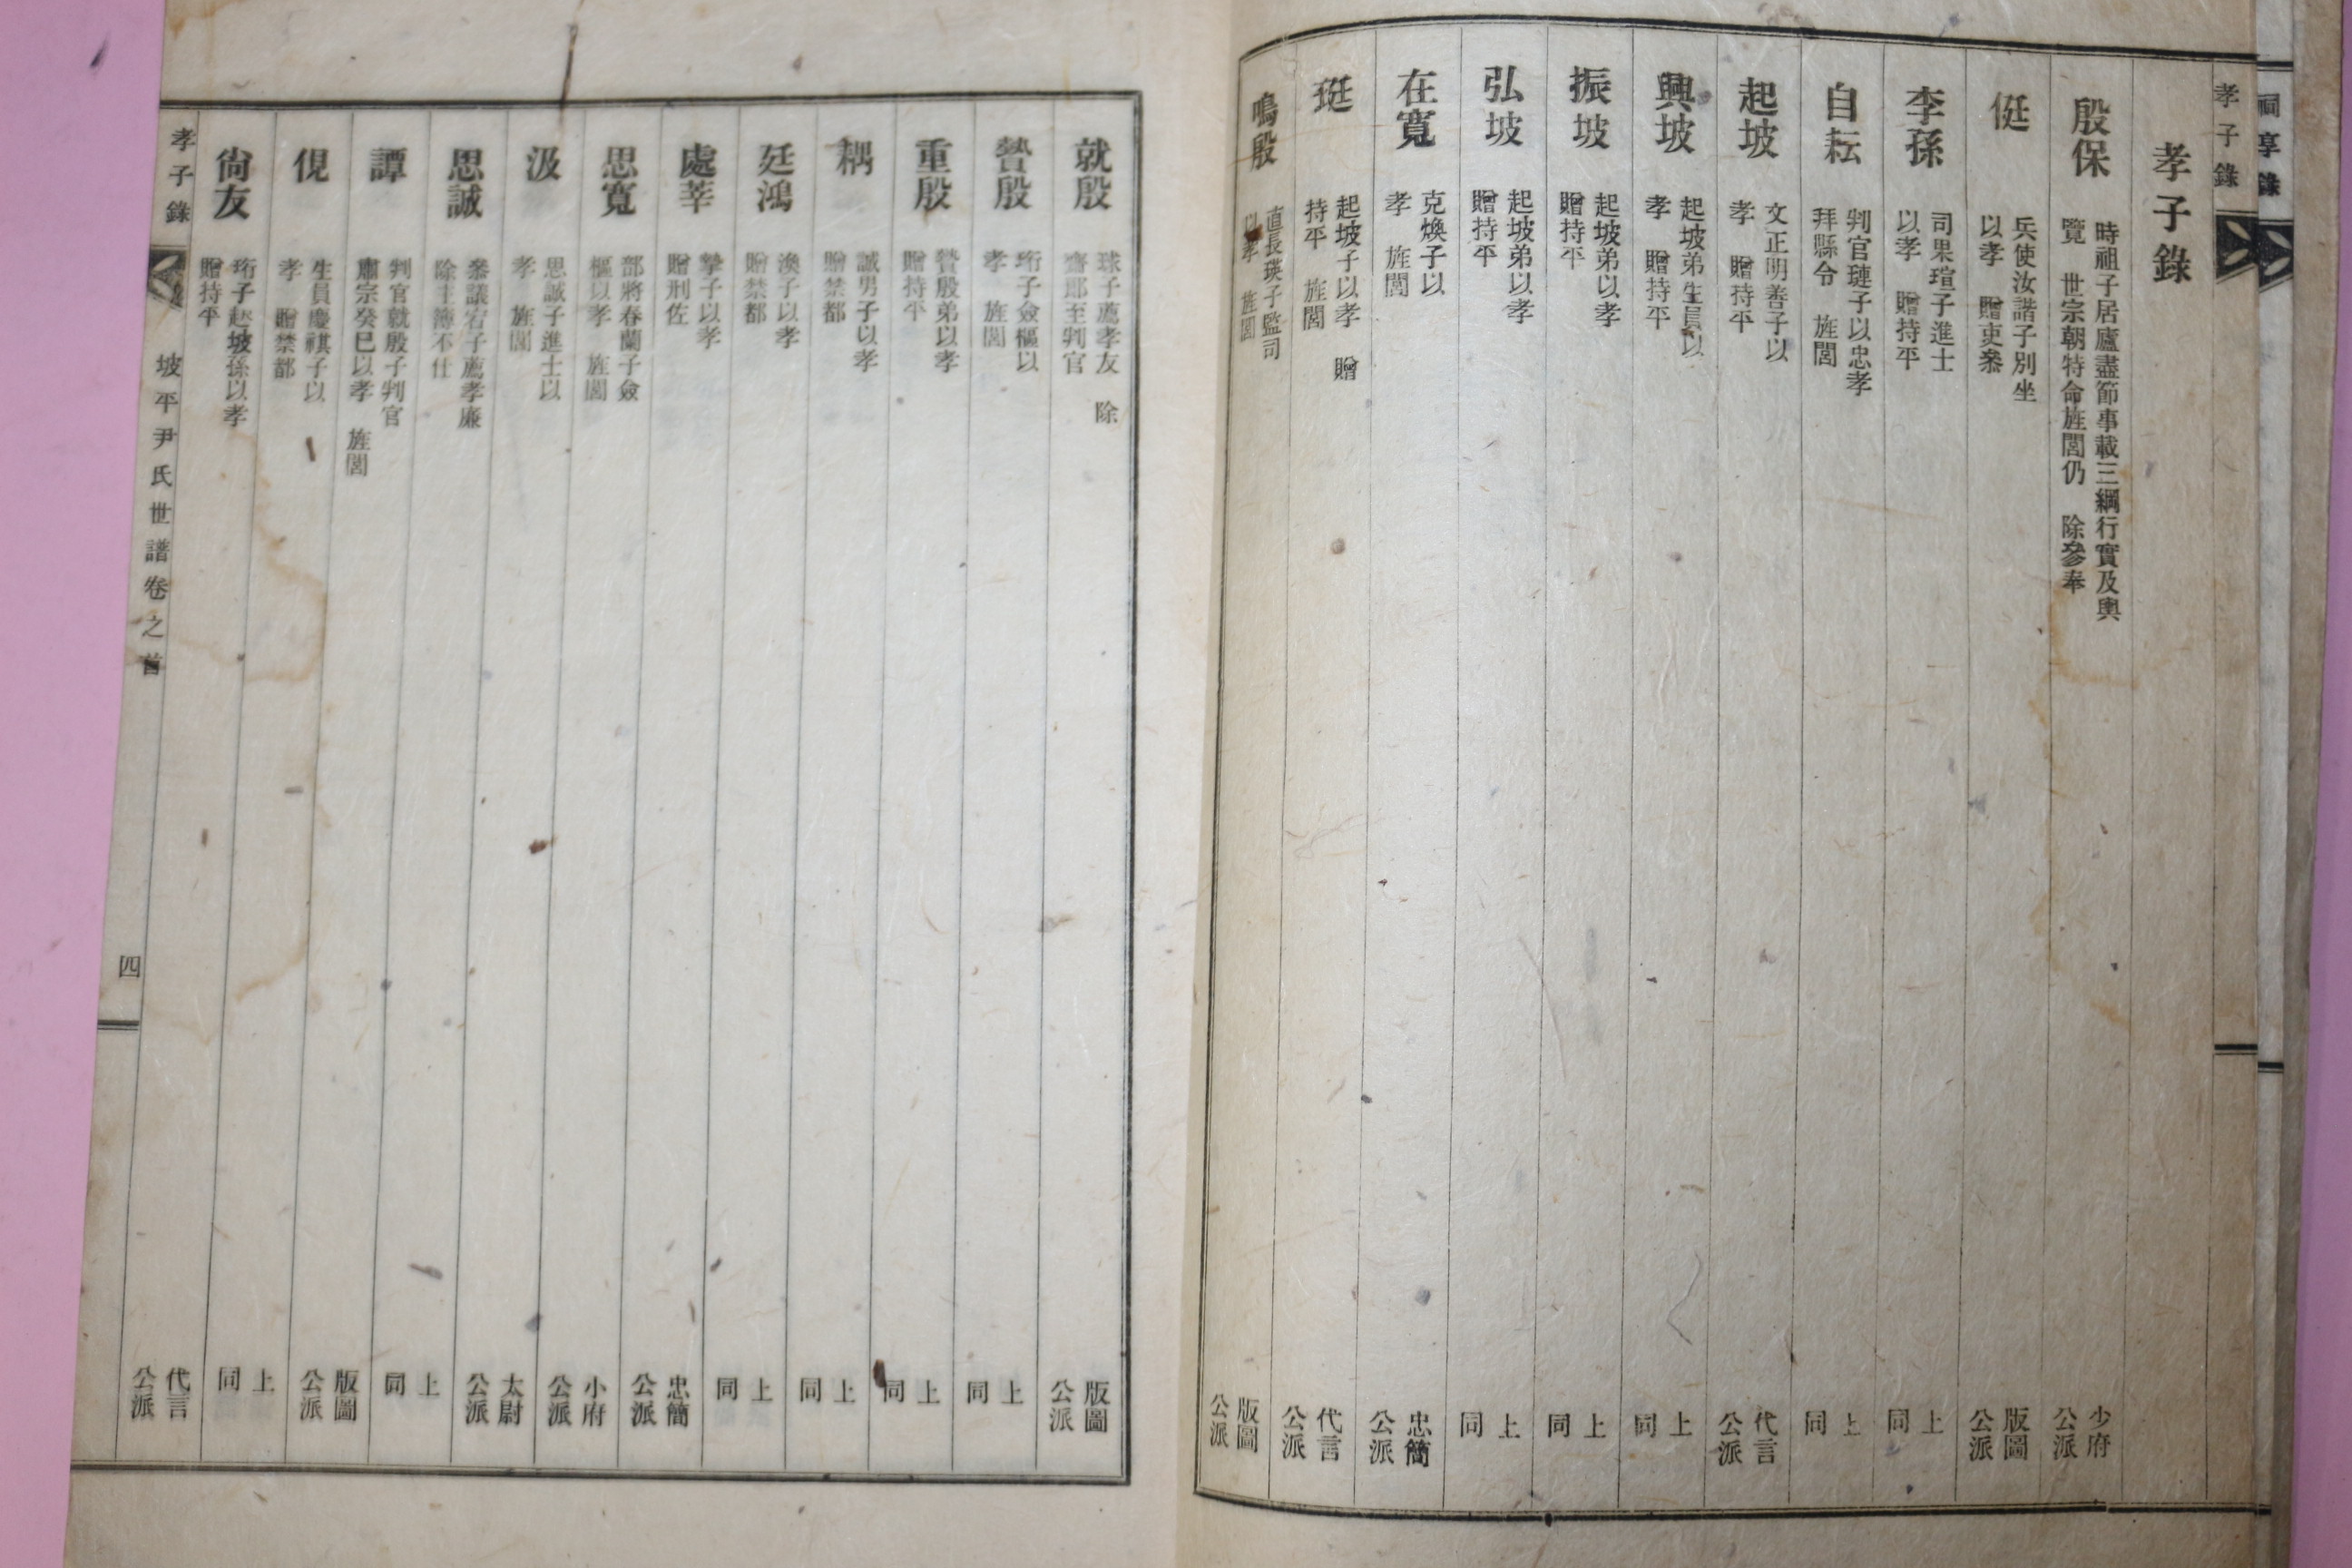 祠享錄
孝子錄
孝子錄
殷保
時祖子居廬盡節事載三綱行實及輿
覽 世宗朝特命旌閭仍 除參奉
少府
公派
侹
兵使汝諧子別坐
以孝 贈吏參
版圖
公派
李孫
司果瑄子進士
以孝 贈持平
同上
自耘
判官璉子以忠孝
拜縣令 旌閭
同上
起坡
文正明善子以
孝 贈持平
代言
公派
興坡
起坡弟生員以
孝 贈持平
同上
振坡
起坡弟以孝
贈持平
同上
弘坡
起坡弟以孝
贈持平
同上
在寬
克煥子以
孝 旌閭
忠簡
公派
珽
起坡子以孝 贈
持平 旌閭
代言
公派
鳴殷
直長瑛子監司
以孝 旌閭
版圖
公派
就殷
球子薦孝友 除
齋郎至判官
版圖
公派
贄殷
珩子僉樞以
孝 旌閭
同上
重殷
贄殷弟以孝
贈持平
同上
耦
誠男子以孝
贈禁都
同上
廷鴻
渙子以孝
贈禁都
同上
處莘
摯子以孝
贈刑佐
同上
思寬
部將春蘭子僉
樞以孝 旌閭
忠簡
公派
汲
思誠子進士以
孝 旌閭
小府
公派
思誠
叅議宕子薦孝廉
除主簿不仕
太尉
公派
譚
判官就殷子判官
肅宗癸巳以孝 旌閭
同上
俔
生員慶祺子以
孝 贈禁都
版圖
公派
同上
尙友
珩子起坡孫以孝
贈持平
代言
公派
孝子錄
坡平尹氏世譜卷之首
四